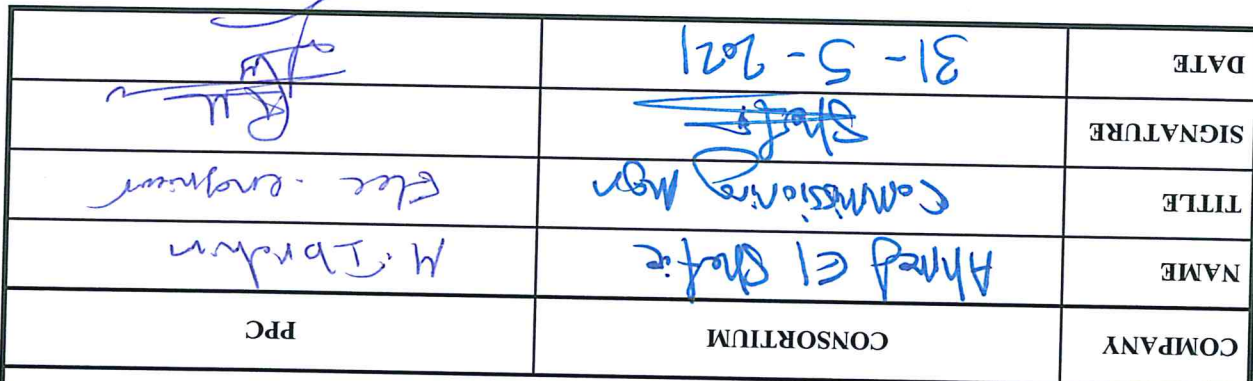 COMPANY CONSORTIUM PPC
NAME Ahmed El Sherfie M. Ibrahim
TITLE Commissioning Mgr Elec. engineer
SIGNATURE
DATE 31-5-2021